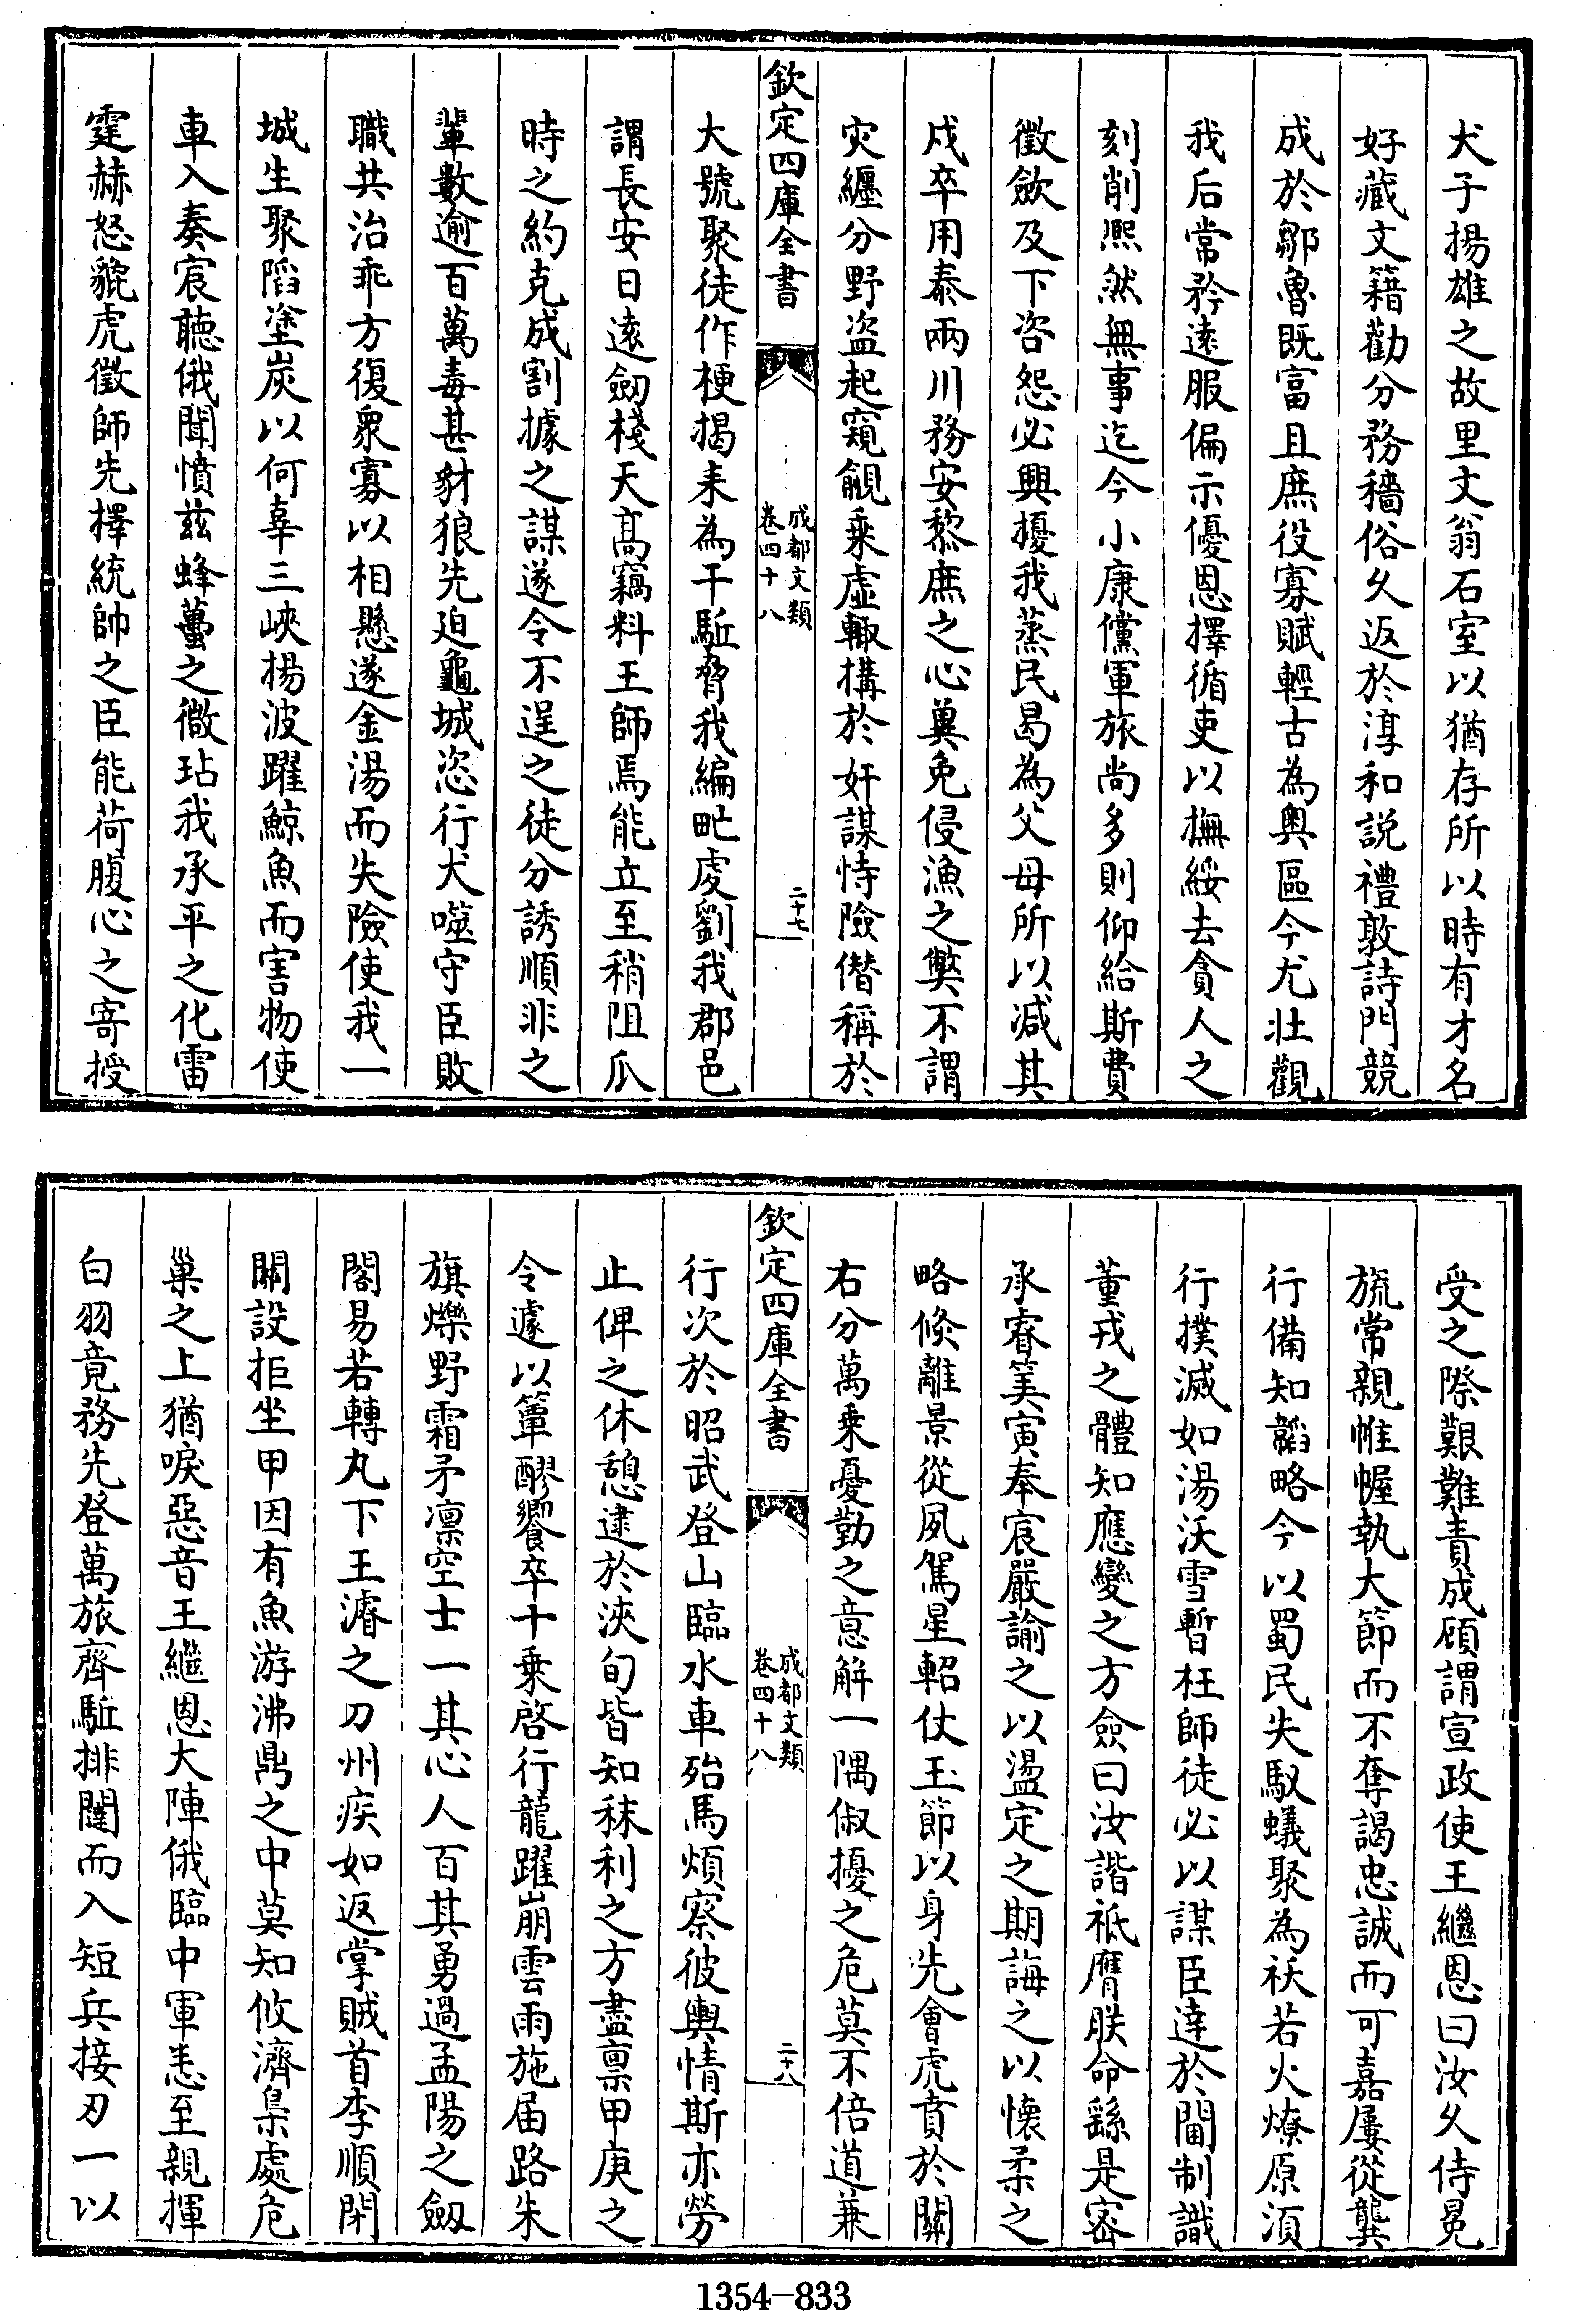 犬子揚雄之故里文翁石室以猶存所以時有才名
好藏文籍勸分務穡俗久返於淳和説禮敦詩門競
成於鄒魯既富且庶役寡賦輕古為奥區今尤壯觀
我后常矜遠服偏示優恩擇循吏以撫綏去貪人之
刻削熙然無事迄今小康儻軍旅尚多則仰給斯費
徵歛及下咨怨必興擾我蒸民曷為父母所以減其
戍卒用泰兩川務安黎庶之心冀免侵漁之弊不謂
灾纏分野盜起窺覦乗虛輙搆於奸謀恃險僣稱於
欽定四庫全書
成都文類
卷四十八
二十七
大號聚徒作梗揭耒為干駈脅我編甿虔劉我郡邑
謂長安日遠劒棧天髙竊料王師焉能立至稍阻瓜
時之約克成割據之謀遂令不逞之徒分誘順非之
輩數逾百萬毒甚豺狼先廹龜城恣行犬噬守臣敗
職共治乖方復衆寡以相懸遂金湯而失險使我一
城生聚䧟塗炭以何辜三峽揚波躍鯨魚而害物使
車入奏宸聽俄聞憤兹蜂蠆之微玷我承平之化雷
霆赫怒貔虎徵師先擇統帥之臣能荷腹心之寄授
受之際艱難責成顧謂宣政使王繼恩曰汝久侍冕
旒常親帷幄執大節而不奪謁忠誠而可嘉屢從龔
行備知韜略今以蜀民失馭蟻聚為祅若火燎原湏
行撲滅如湯沃雪暫枉師徒必以謀臣逹於閫制識
董戎之體知應變之方僉曰汝諧祗膺朕命繇是密
承睿筭寅奉宸嚴諭之以盪定之期誨之以懷柔之
略倐離景從夙駕星軺仗玉節以身先會虎賁於關
右分萬乗憂勤之意解一隅俶擾之危莫不倍道兼
欽定四庫全書
成都文類
卷四十八
二十八
行次於昭武登山臨水車殆馬煩察彼輿情斯亦勞
止俾之休憩逮於浹旬皆知秣利之方盡禀甲庚之
令遽以簞醪饗卒十乗啓行龍躍崩雲雨施届路朱
旗爍野霜矛凛空士一其心人百其勇過孟陽之劒
閣易若轉丸下王濬之刀州疾如返掌賊首李順閉
關設拒坐甲因有魚游沸鼎之中莫知攸濟梟處危
巢之上猶唳惡音王繼恩大陣俄臨中軍悉至親揮
白羽竟務先登萬旅齊駈排闥而入短兵接刃一以
1354-833